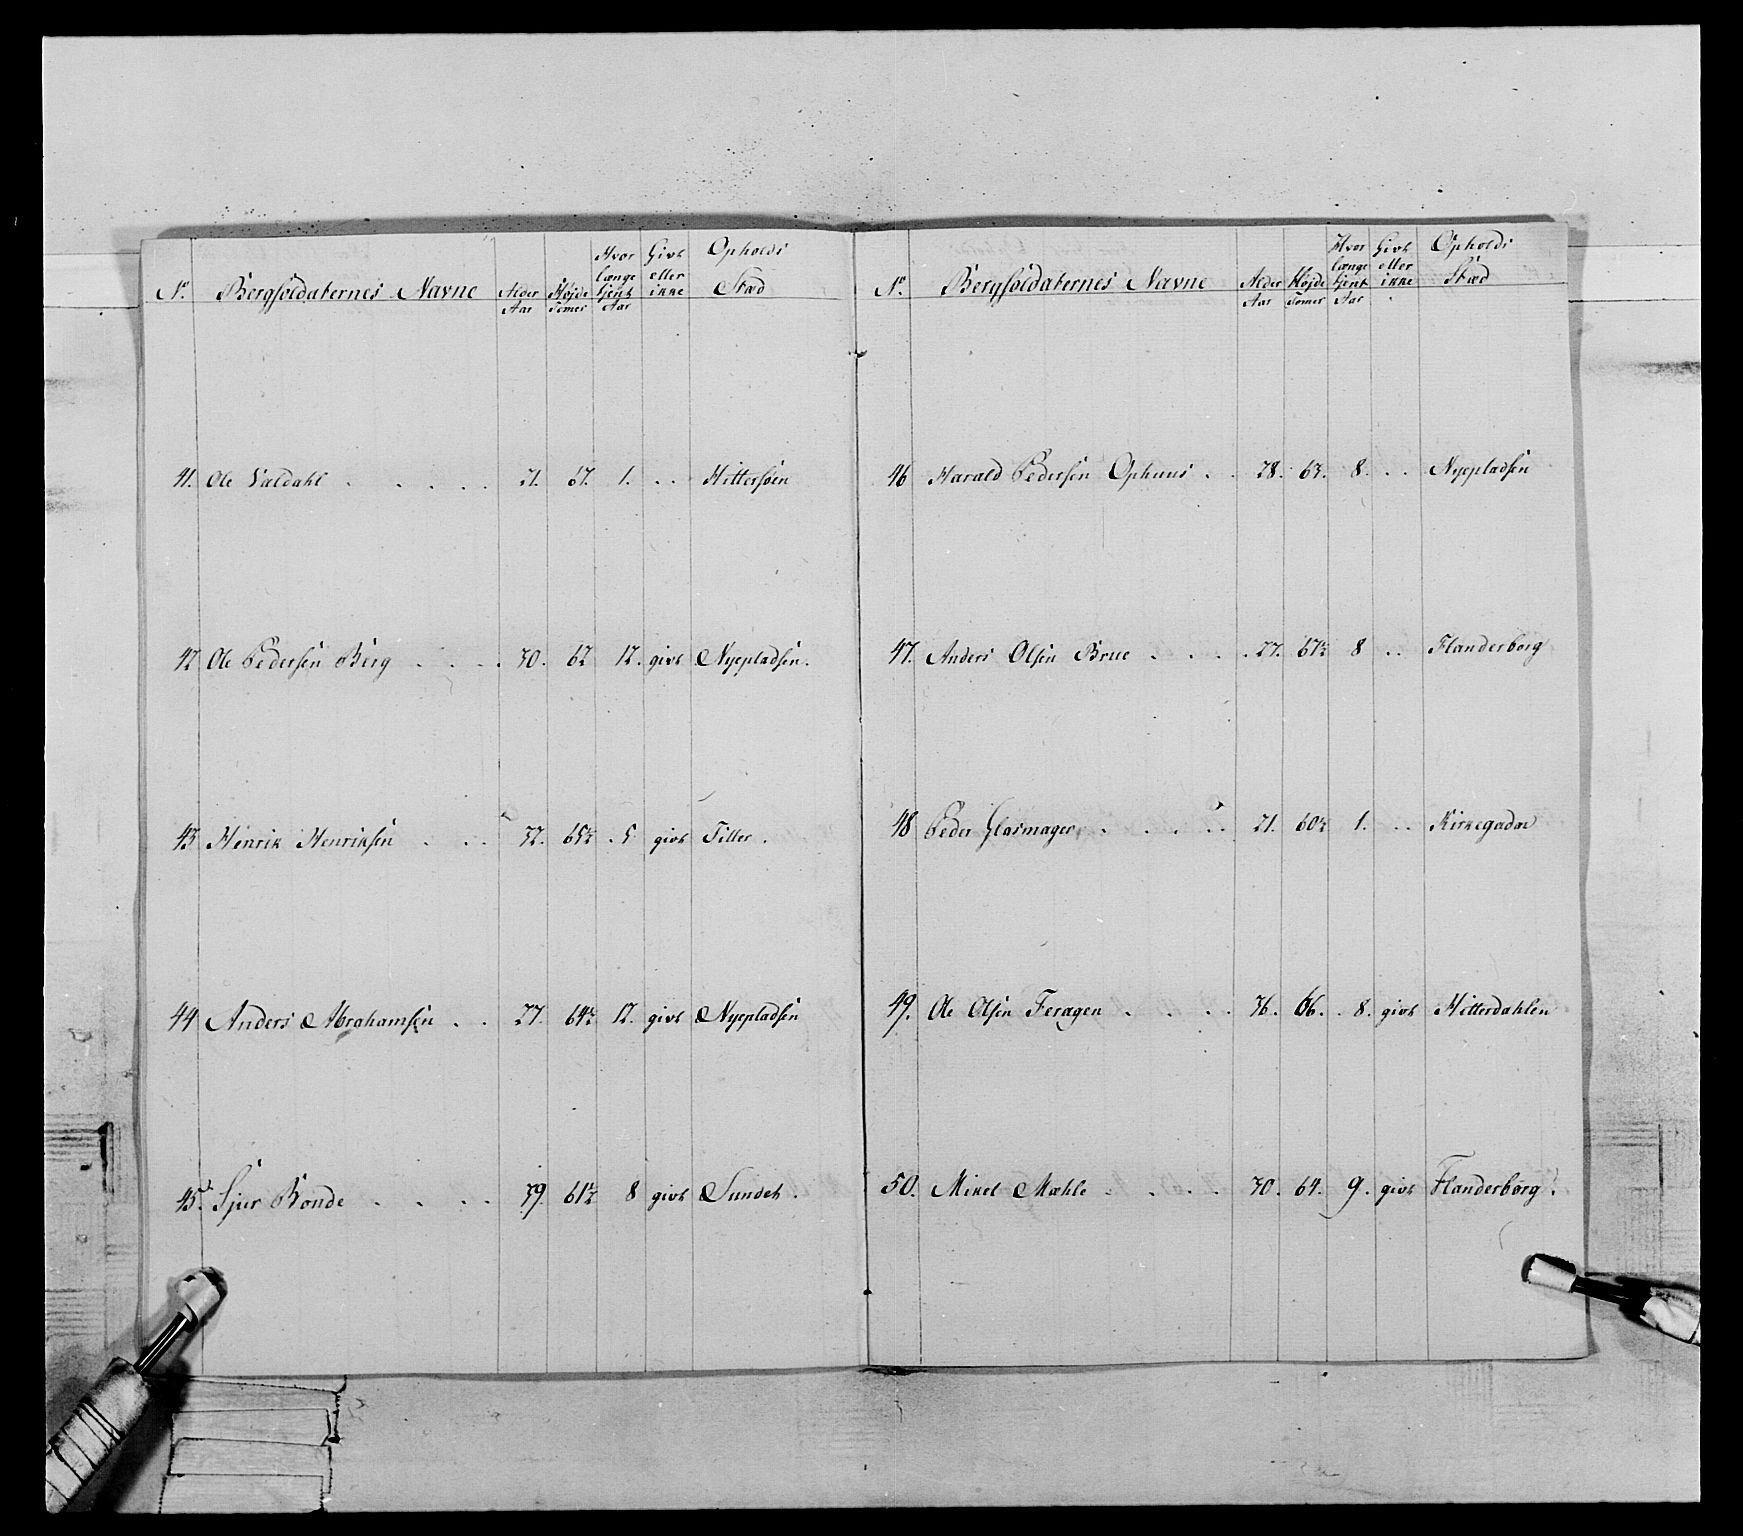 No. Bergsoldaternes Navne Alder Aar Højde Tomer Hvor længe tjent Aar Givt eller ikke Opholds Stæd
41. Ole Valdahl . . . . . 21. 67. 1. . . Hittersøen
42 Ole Pedersen Berg . . . . 30. 62 12. givt Nyepladsen.
43 Henrik Henriksen . . . 32. 65½ . 5 givt Tiller.
44 Anders Abrahamsen . . 27. 64½ 12. givt Nyepladsen
45. Sjur Bonde . . . . 39. 61½ 8 givt Sundet.
No. Bergsoldaternes Navne Alder Aar Højde Tomer Hvor længe tjent Aar Givt eller ikke Opholds Stæd
46 Harald Pedersen Ophuus . . 28. 63. 8. . . Nyepladsen
47. Anders Olsen Brue . . . . 27. 67½ 8 . . Flanderborg
48 Peder Glasmager . . . . . 21. 60½ 1. . . Kirkegaden
49. Ole Olsen Feragen . . . . 36. 66. . 8. givt Hitterdahlen
50. Mikel Mæhle . . . . 30. 64. 9. givt Flanderborg.